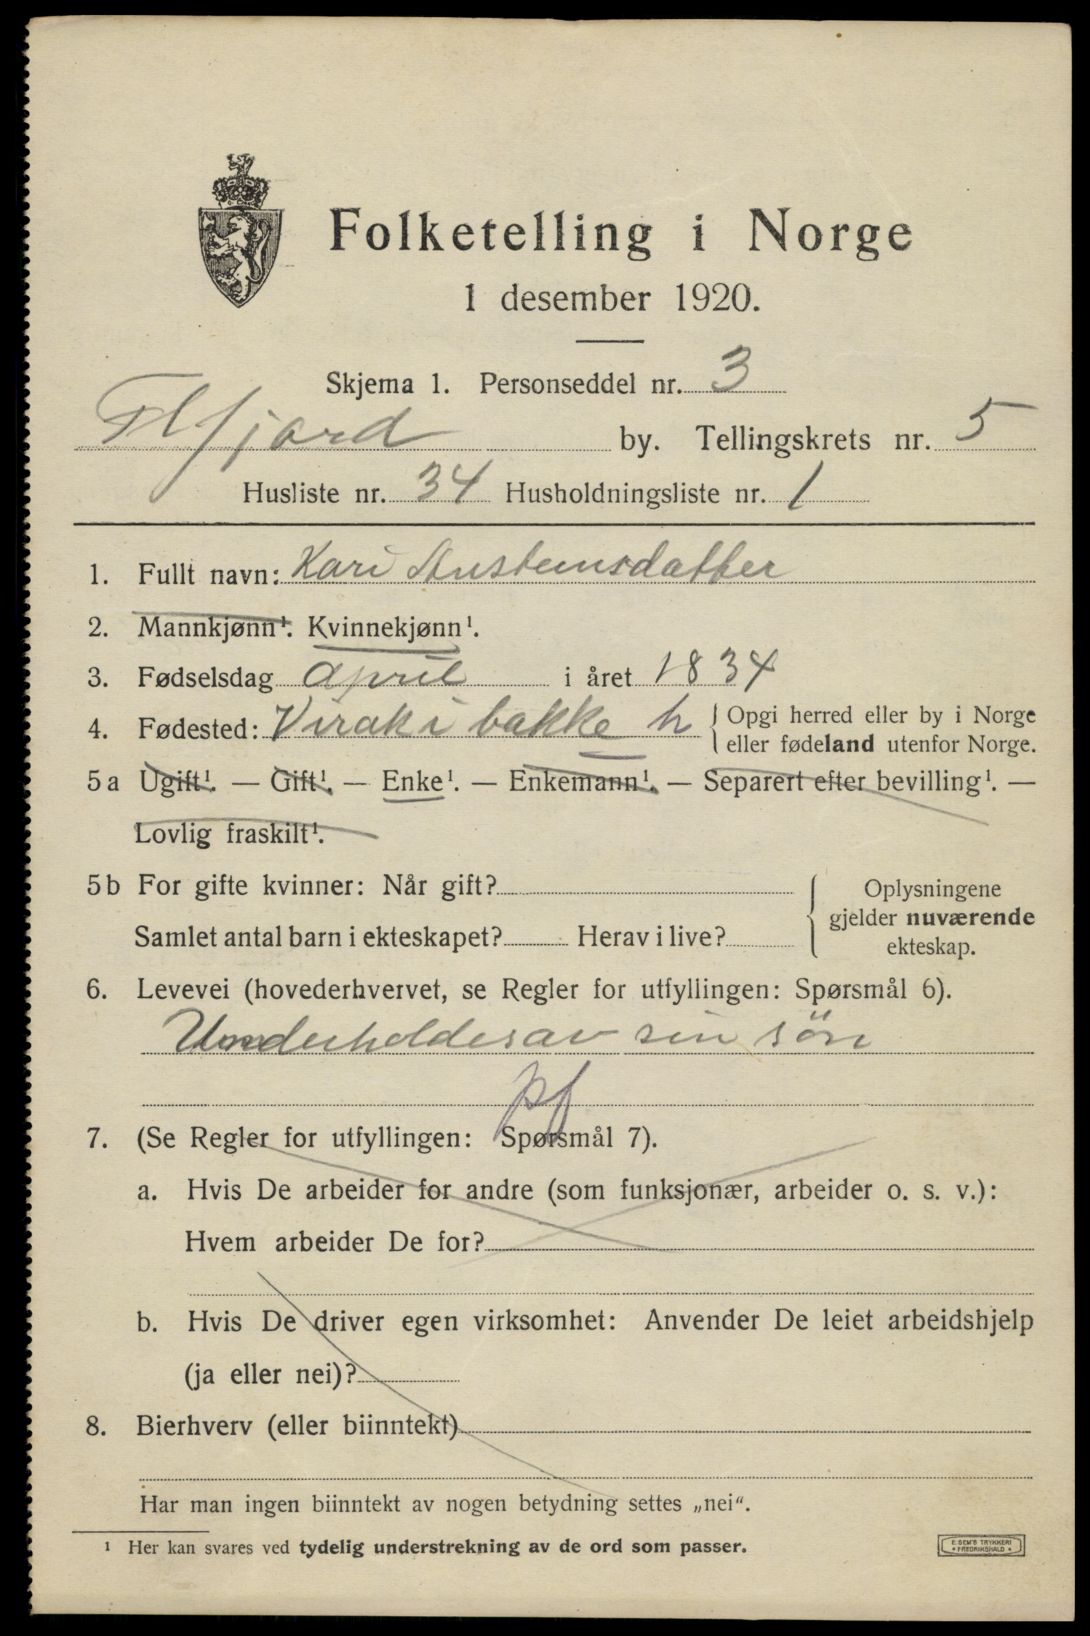 Folketelling i Norge
1 desember 1920.
Skjema 1. Personseddel nr. 3
Flfjord by. Tellingskrets nr. 5
Husliste nr. 34 Husholdningsliste nr. 1
1. Fullt navn: Kari Austeinsdatter
2. Mannkjønn¹. Kvinnekjønn¹.
3. Fødselsdag april i året 1834
4. Fødested: Virak i bakke h { Opgi herred eller by i Norge
eller fødeland utenfor Norge.
5 a Ugift¹. — Gift¹. — Enke¹. — Enkemann¹. — Separert efter bevilling¹. —
Lovlig fraskilt¹.
5 b For gifte kvinner: Når gift? { Oplysningene
gjelder nuværende
Samlet antal barn i ekteskapet? Herav i live? ekteskap.
6. Levevei (hovederhvervet, se Regler for utfyllingen: Spørsmål 6).
Underholdes av sin sön
pf
7. (Se Regler for utfyllingen: Spørsmål 7).
a. Hvis De arbeider for andre (som funksjonær, arbeider o. s. v.):
Hvem arbeider De for?
b. Hvis De driver egen virksomhet: Anvender De leiet arbeidshjelp
(ja eller nei)?
8. Bierhverv (eller biinntekt)
Har man ingen biinntekt av nogen betydning settes „nei“.
¹ Her kan svares ved tydelig understrekning av de ord som passer.
E. SEM'S TRYKKERI
• FREDRIKSHALD •